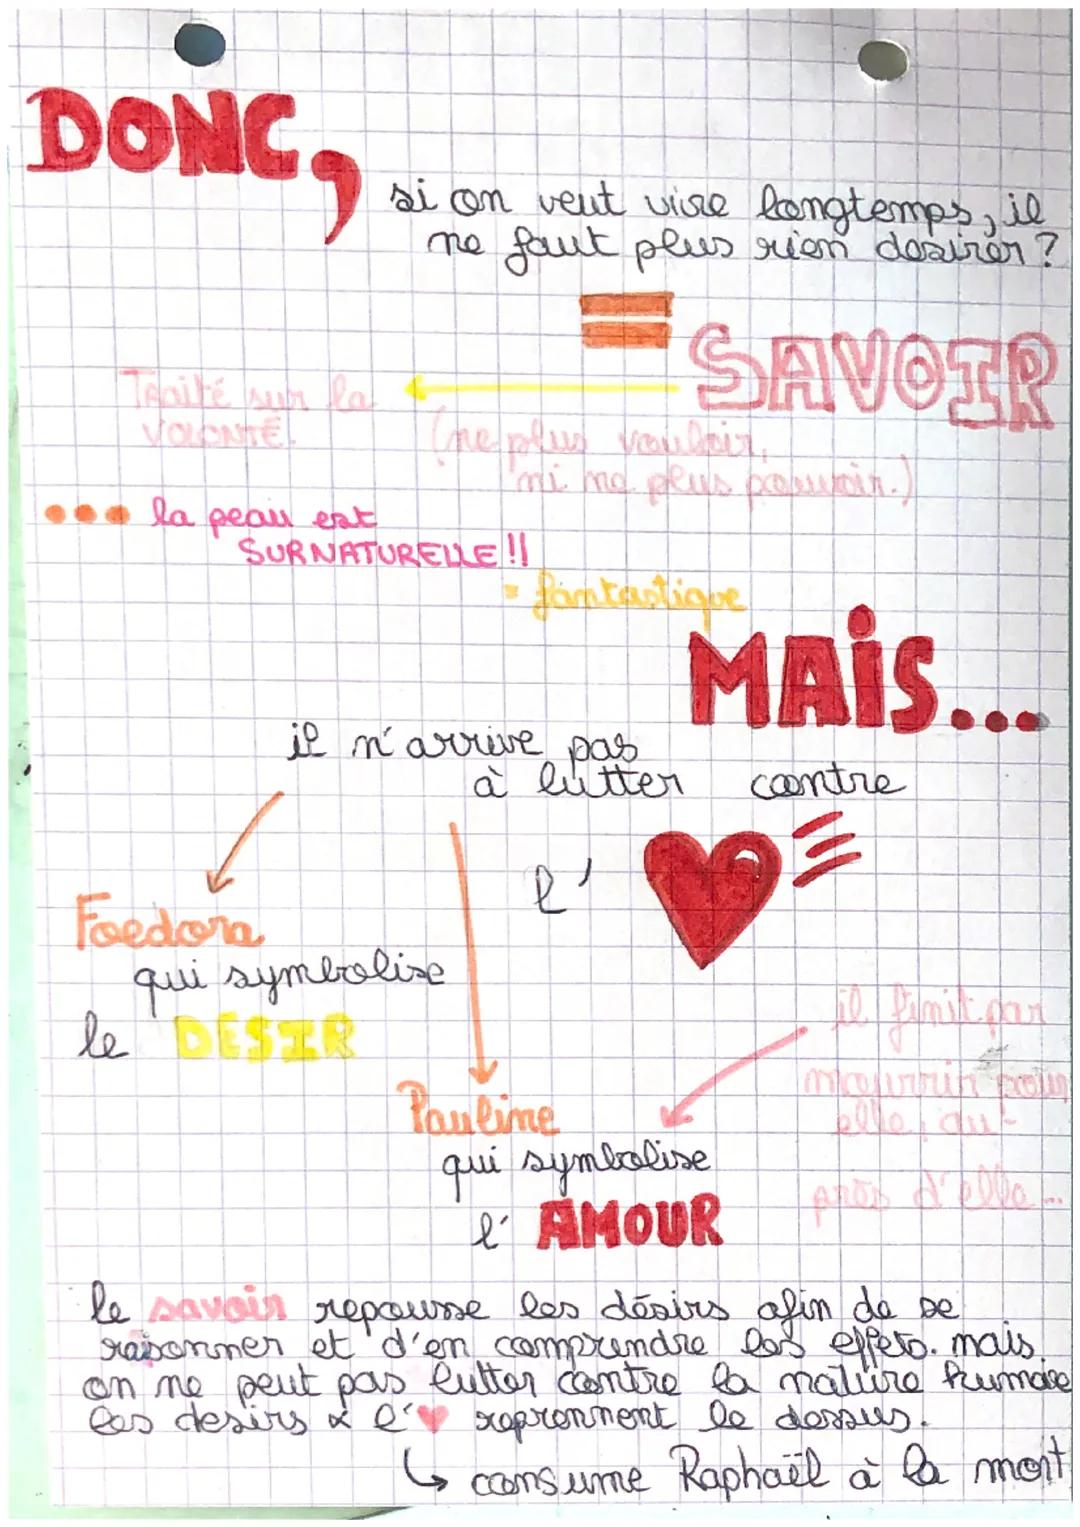 DONC,
si on veut vivre longtemps, il
ne faut plus rien desirer ?
= SAVOIR
Traité sur la
VOLONTÉ.
(ne plus vouloir,
ni ne plus pouvoir.)
... la peau est
SURNATURELLE !!
= fantastique
MAIS...
il n'arrive pas
à lutter contre
l' ♥
Foedora
qui symbolise
le DESIR
il finit par
mourrir pour
elle, au-
près d'elle...
Pauline
qui symbolise
l' AMOUR
le savoir repousse les désirs afin de se
raisonner et d'en comprendre les effets. mais
on ne peut pas lutter contre la nature humaine
les desirs & l'♥ reprennent le dessus.
↳ consume Raphaël à la mort